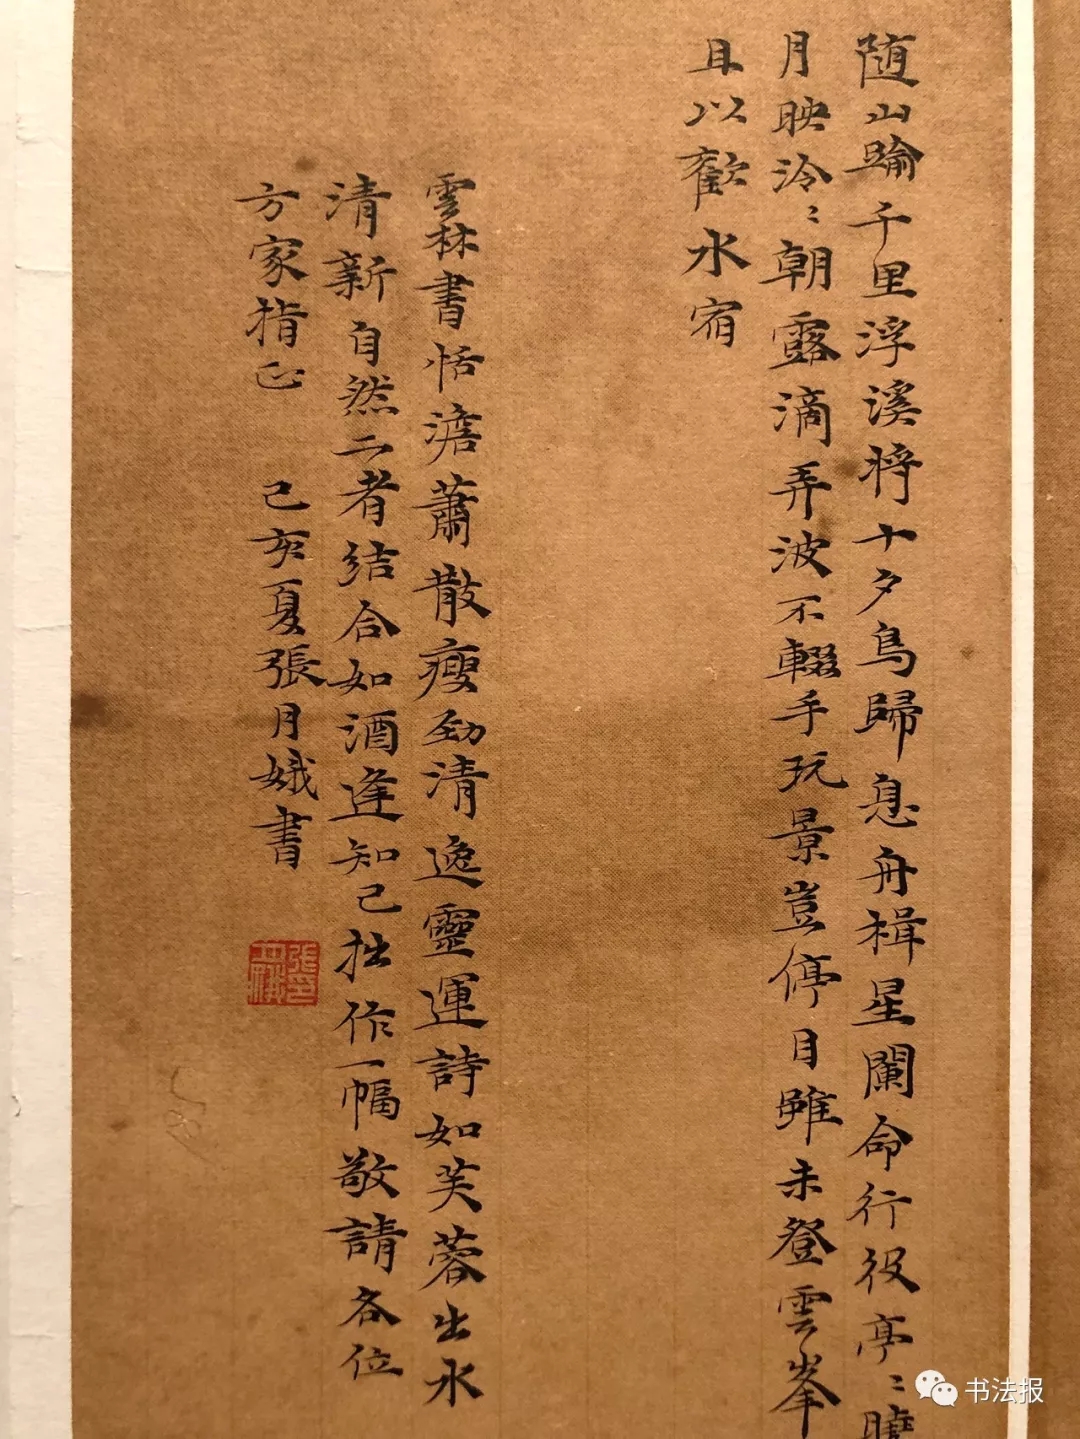 随山踰千里浮溪将十夕鳥歸息舟楫星闌命行役亭〻曉
月映泠〻朝露滴弄波不輟手玩景豈停目雖未登雲峯
且以歡水宿
雲林書恬澹蕭散瘦劲清逸靈運詩如芙蓉出水
清新自然二者结合如酒逢知己拙作一幅敬請各位
方家指正 己亥夏張月娥書
书法报